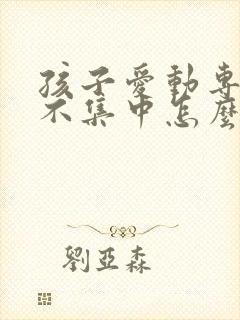 孩子愛動專
不集中怎麼
劉亞森